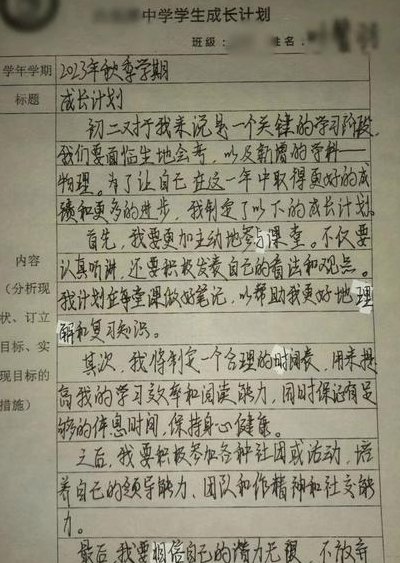 中学学生成长计划
班级：
姓名：
学年学期 2023年秋季学期
标题 成长计划
初二对于我来说是一个关键的学习阶段
我们要面临生地会考，以及新增的学科——
物理。为了让自己在这一年中取得更好的成
绩和更多的进步，我制定了以下的成长计划。
首先，我要更加主动地参与课堂。不仅要
认真听讲，还要积极发表自己的看法和观点。
我计划在每堂课做好笔记，以帮助我更好地理
解和复习知识。
其次，我将制定一个合理的时间表，用来提
高我的学习效率和阅读能力，同时保证有足
够的休息时间，保持身心健康。
之后，我要积极参加各种社团或活动，培
养自己的领导能力、团队和作精神和社交能
力。
最后，我要相信自己的潜力无限，不放弃
内容
（分析现
状、订立
目标、实
现目标的
措施）